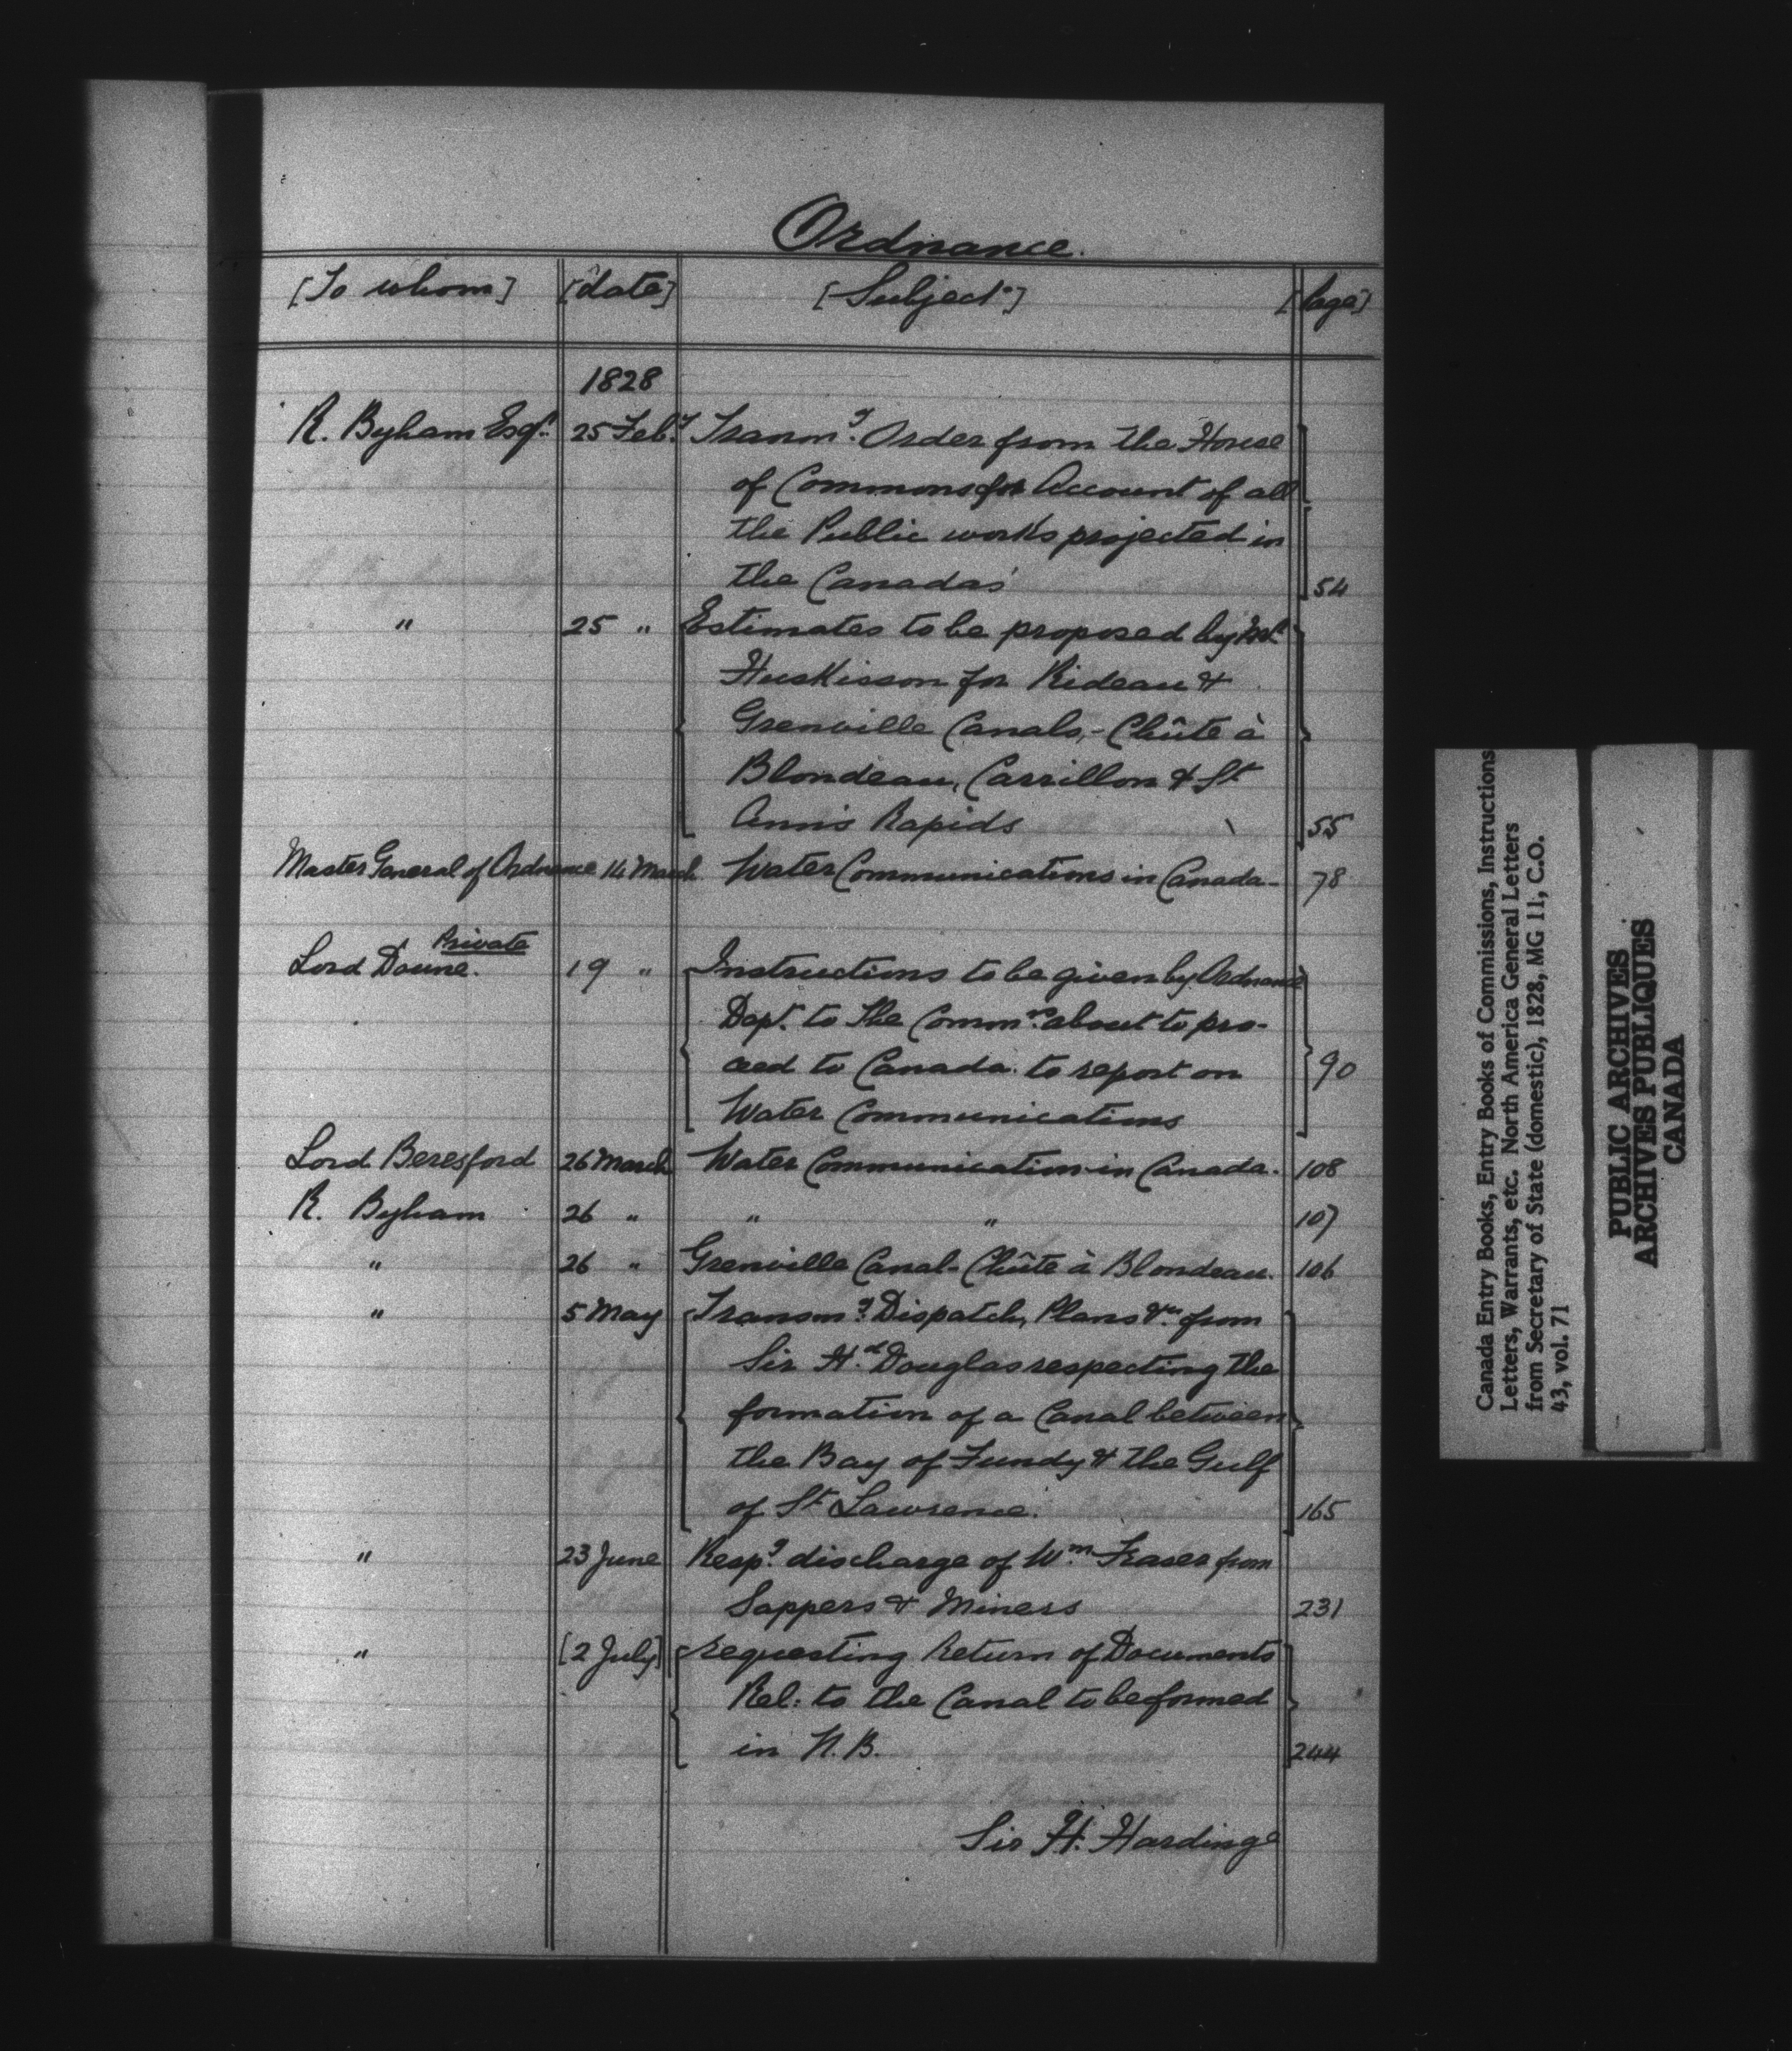 Ordnance.
[To whom] [date] [Subject] [Page]
1828
R. Byham Esqr. 25 Feby. Transmg. Order from the House
of Commons for Account of all
the Public works projected in
the Canadas 54
" 25 " Estimates to be proposed by Mr.
Huskisson for Rideau &
Grenville Canals, - Chûte à
Blondeau, Carrillon & St
Ann's Rapids 55
Master General of Ordnance 14 March Water Communications in Canada - 78
Private
Lord Doune. 19 " Instructions to be given by Ordnance
Dept. to the Commrs. about to pro-
ceed to Canada to report on 90
Water Communications
Lord Beresford 26 March Water Communication in Canada. 108
R. Byham 26 " " " 107
" 26 " Grenville Canal - Chûte à Blondeau. 106
" 5 May Transmg. Dispatch, Plans &c. from
Sir Hd. Douglas respecting the
formation of a Canal between
the Bay of Fundy & the Gulf
of St Lawrence. 165
" 23 June Respg. discharge of Wm. Fraser from
Sappers & Miners 231
" [2 July] requesting Return of Documents
Rel: to the Canal to be formed
in N.B. 244
Sir H. Hardinge
Canada Entry Books, Entry Books of Commissions, Instructions
Letters, Warrants, etc. North America General Letters
from Secretary of State (domestic), 1828, MG 11, C.O.
43, vol. 71
PUBLIC ARCHIVES
ARCHIVES PUBLIQUES
CANADA